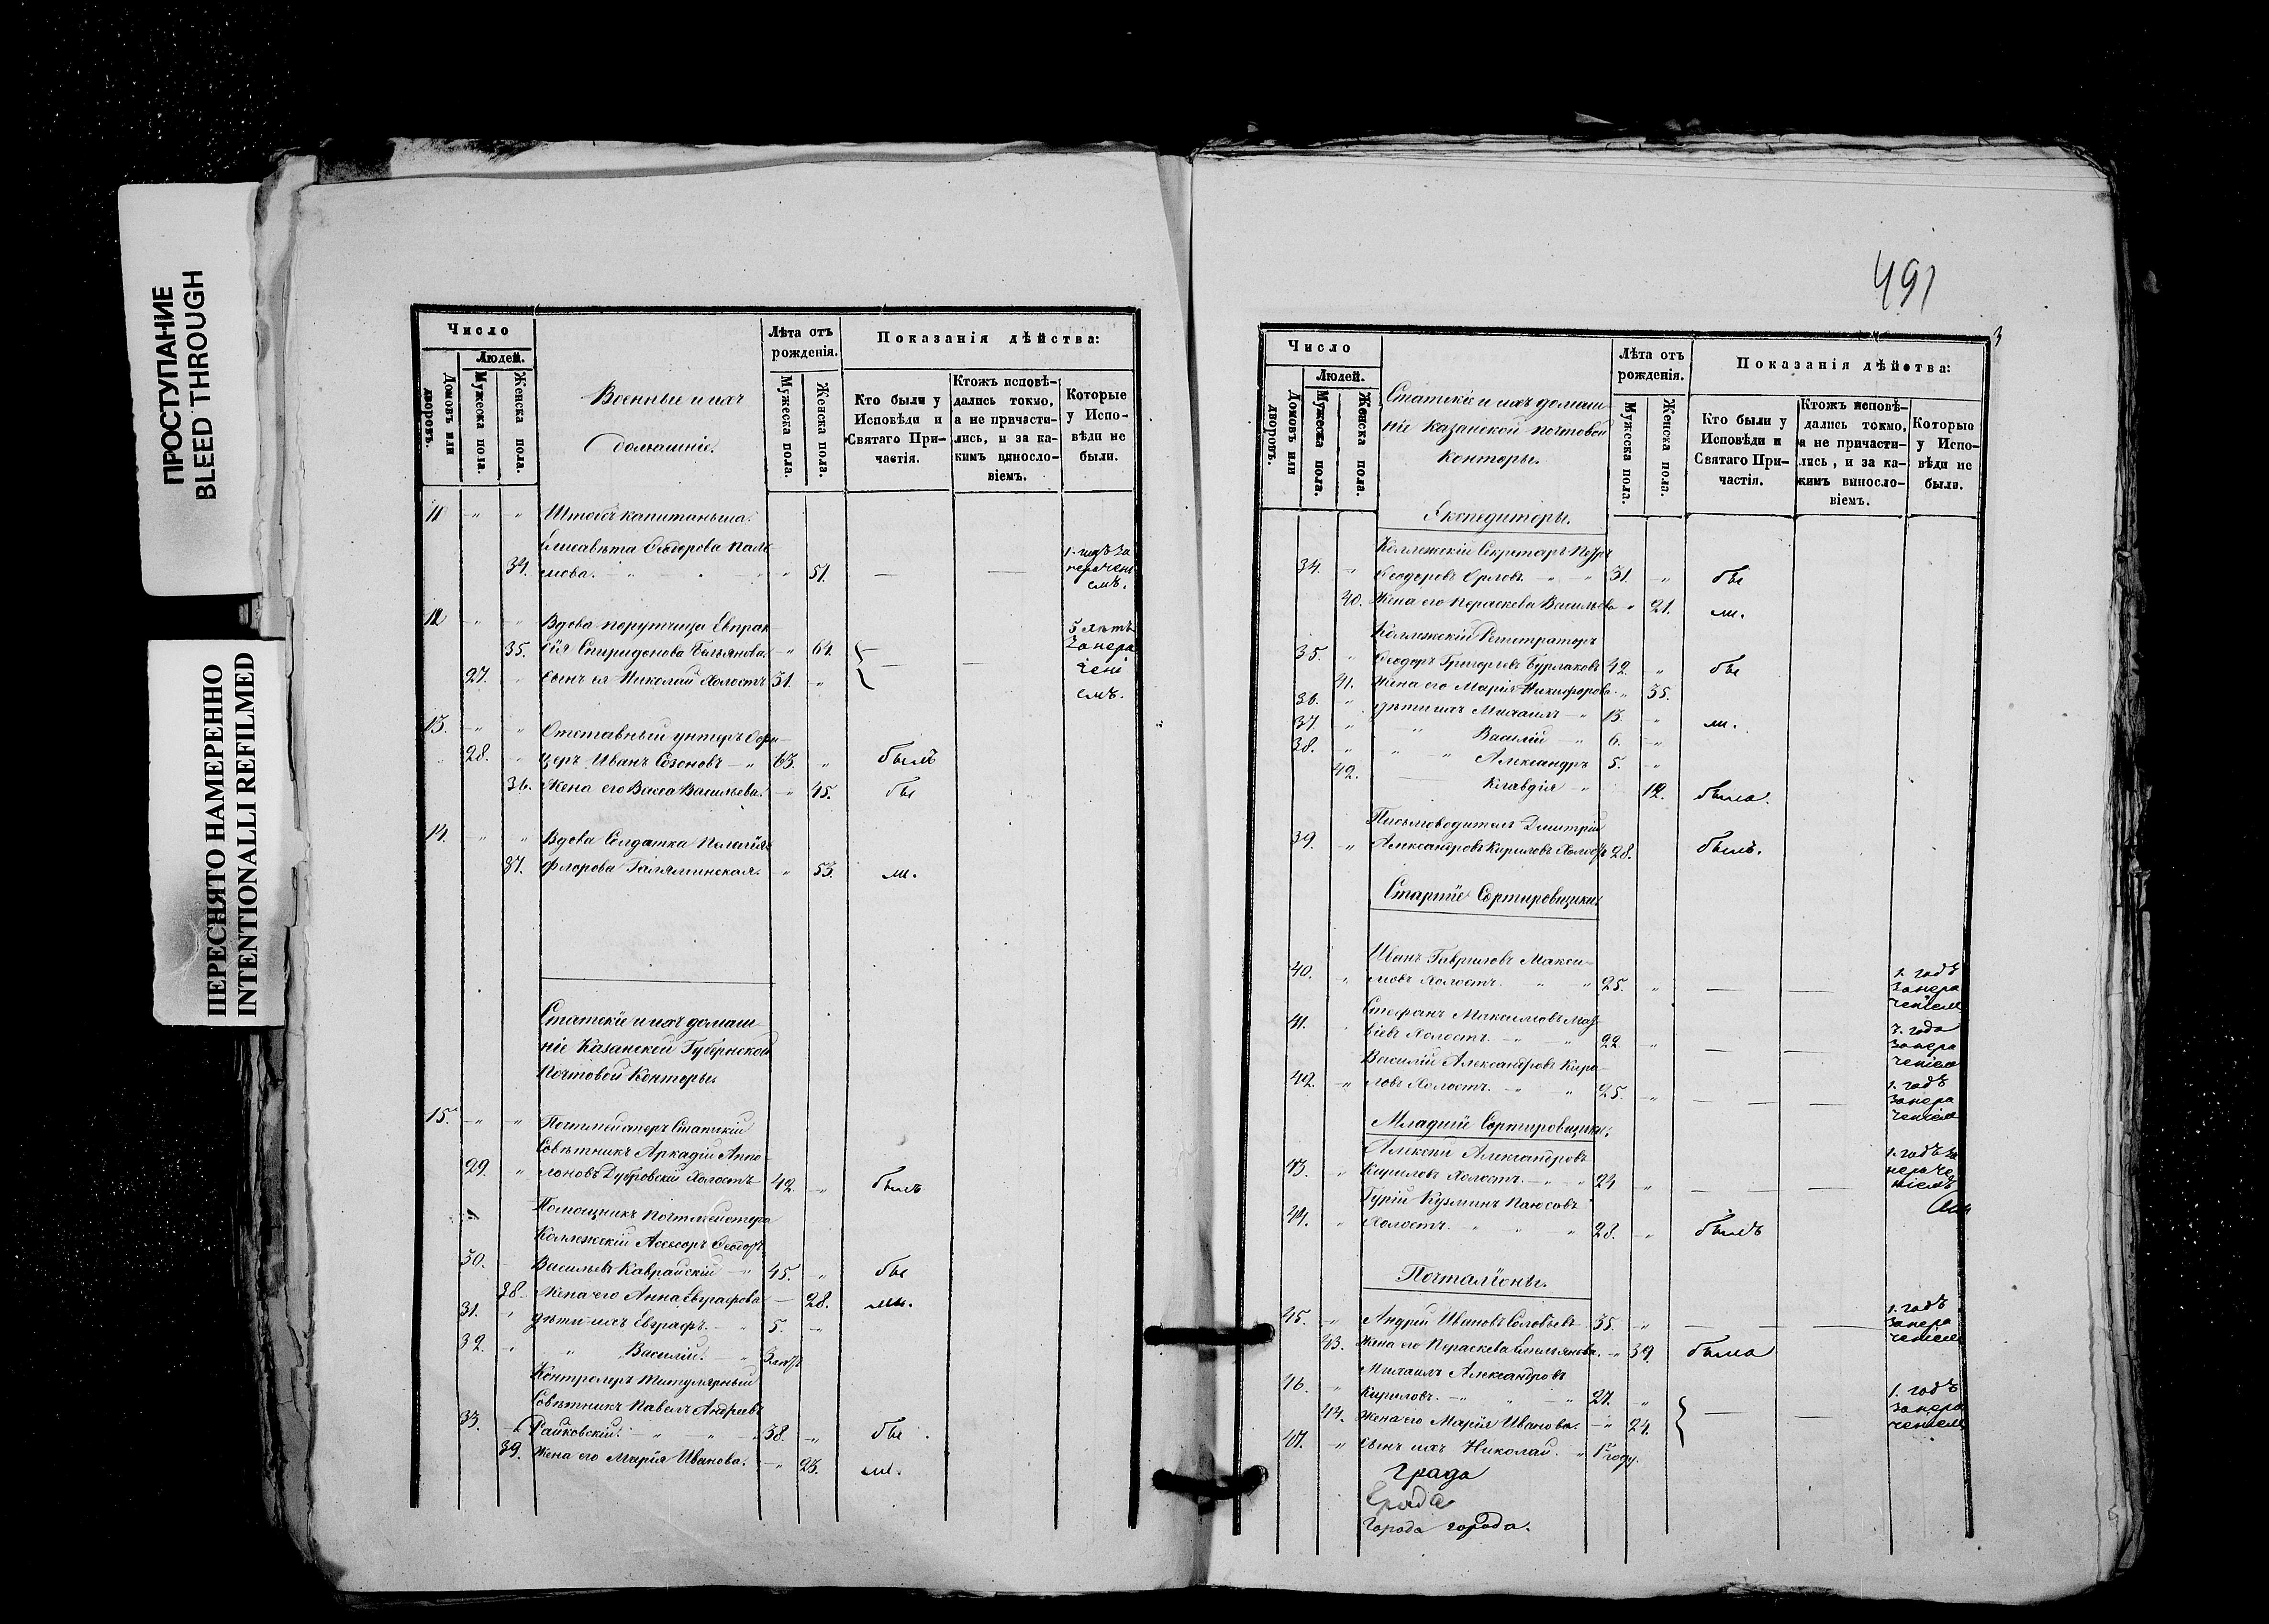 ПРОСТУПАНИЕ
BLEED THROUGH
ПЕРЕСНЯТО НАМЕРЕННО
INTENTIONALLI REFILMED
Число
Людей.
Домовъ или дворовъ.
Мужеска пола.
Женска пола.
Военные и ихъ
домашніе.
Лѣта отъ рожденія.
Мужеска пола.
Женска пола.
Показанія дѣйства:
Кто были у Исповѣди и Святаго Причастія.
Ктожъ исповѣ-
дались токмо,
а не причасти-
лись, и за ка-
кимъ винносло-
віемъ.
Которые
у Испо-
вѣди не
были.
11 " " Штабсъ капитанша.
Елисавета Феодорова Паль
34. мова. " 51. — — 1. годъ за нерачені емъ.
12 " " Вдова порутчица Евпрак
35. сія Спиридонова Бельянова. " 64. — — 5 лѣтъ
27. " Сынъ ея Николай Холостъ 31. " за нерачені емъ.
13. " " Отставный унтеръ Офи
28. " церъ Иванъ Созоновъ — " 63. " былъ
36. Жена его Васса Васильева. " 45. бы
14. " " Вдова Солдатка Пелагія
37. Флорова Галяминская. " 53. ли.
Статскіе и ихъ домаш-
ніе Казанской Губернской
Почтовой Конторы.
15. " " Почтмейстеръ Статскій
Совѣтникъ Аркадій Аппо
29. " лоновъ Дубровскій Холостъ 42. " былъ
Помощникъ почтмейстера
Коллежскій Асессоръ Феодоръ
30. Васильевъ Каврайскій " 45. " бы
38. Жена его Анна Евграфова — 28. ли.
31. " дѣти ихъ Евграфъ. — " 5. "
32. " " Василій. "
Контролеръ Титулярный
Совѣтникъ Павелъ Андреевъ
33. Райковскій. " " 38. " бы
39. Жена его Марія Иванова. " 23. ли.
491
3
Число
Людей.
Домовъ или дворовъ.
Мужеска пола.
Женска пола.
Статскіе и ихъ домаш
ніе Казанской почтовой
Конторы.
Лѣта отъ рожденія.
Мужеска пола.
Женска пола.
Показанія дѣйства:
Кто были у Исповѣди и Святаго Причастія.
Ктожъ исповѣ-
дались токмо,
а не причасти-
лись, и за ка-
кимъ винносло-
віемъ.
Которые
у Испо-
вѣди не
были.
Экспедиторы.
Коллежскій Секретарь Петръ
34. " Феодоровъ Орловъ. — " 31. " бы
40. Жена его Параскева Васильева " 21. ли.
Коллежскій Регистраторъ
35. " Феодоръ Григорьевъ Бурлаковъ 42. " бы
41. Жена его Марія Никифорова. " 35.
36. " дѣти ихъ Михаилъ — " 13. " ли.
37. " " Василій — " 6. "
38. " " " Александръ 5. "
42. Клавдія — " 12. была.
Письмоводитель Дмитрій
39. " Александровъ Кириловъ Холостъ 28. былъ.
Старшіе Сортировщики.
Иванъ Гавриловъ Макси-
40. " мовъ Холостъ. " " 25. " — — 1. годъ за нера ченіем
Стефанъ Максимовъ Мат
41. " віевъ Холостъ. — " 22. " — — года за нера ченіем
Василій Александровъ Кири
42. " ловъ Холостъ. — " 25. " — — 1. годъ за нера ченіем
Младшій Сортировщики.
Алексій Александровъ
43. " Кириловъ Холостъ. — " 24 " — — 1. годъ за нераче ніемъ
Гурій Кузминъ Паюсовъ
44. " Холостъ. " " 28. " былъ
Почталіоны.
45. " Андрей Ивановъ Соловьевъ 35. " — — 1. годъ за нера ченіем
43. Жена его Параскева Емельянова. " 39. была
Михаилъ Александровъ
46. " Кириловъ. — " " 27. " — — 1. годъ за нера ченіем
44. Жена его Марія Иванова. — " 24.
47. " Сынъ ихъ Николай. " 1 году.
града
града
города города.